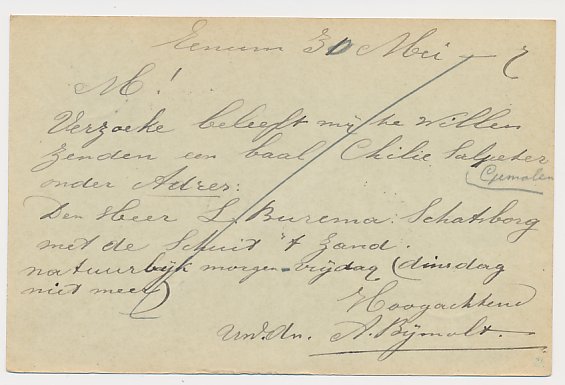 Eenum 30 Mei - 7
M!
Verzoeke beleeft mij te willen
zenden een baal Chilie Salpeter
(Gemalen
onder Adres:
Den Heer L. Burema. Schatsborg
met de Schuit 't Zand.
natuurlijk morgen vrijdag (dinsdag
niet meer)
Hoogachtend
Uw. dn. A. Bijmolt.